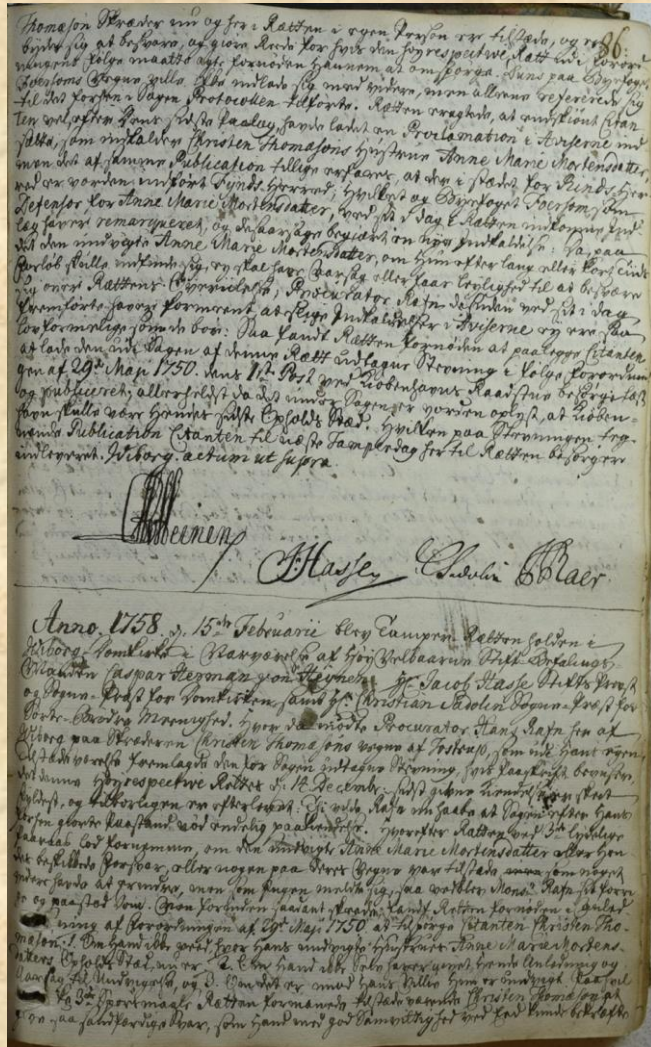 86:
Thomason Skræder nu og her i Rætten i egen Person er tilstæde, og
byder sig at besvare, og giøre Rede for hvis den høyrespective Rætt udi Forord
ningens følge maatte agte fornøden Hannem at om spørge.
til det forhen i Sagen Protocollen tilførte. Rætten eragtede, at endskiønt Citan
ten vel efter dens sidste Paalæg, havde ladet en Proclamation i Aviserne ind
sætte, som indkalder Christen Thomasons Hustrue Anne Marie Mortensdatter,
men det af samme Publication tillige erfares, at der i stædet for Rinds Her
red er vorden indført Fynds-Herred; hvilket og Byefoget Foersom, som
Defensor for Anne Marie Mortensdatter, ved sit i Dag i Rætten indkomne Ind
læg haver remarqueret, og desaarsage begiært en nye Indkaldelse: Da, paa
det den undvigte Anne Marie Mortensdatter, om Hun efter lang eller kort Tiids
Forløb skulle indfinde sig, ey skal have Aarsag eller haar leylighed til at besvære
sig over Rættens Overiilelse; Procurator Rafn desuden ved Sit i dag
fremførte haver formeent, at slige Indkaldelser i Aviserne ey ere saa
lovformelige som de bør: Saa fandt Rætten fornøden at paalegge Citanten
at lade den udi Sagen af denne Rætt udtagne Stevning i følge Forordnin
gen af 29de Maji 1750. dens 1ste Post ved Kiøbenhavns Raadstue besørge læst
og publiceret; allerhelst da det under Sagen er vorden oplyst, at Kiøben-
havn skulle være Hendes sidste Opholds Stæd. Hvilken paa Stevningen teg-
nende Publication Citanten til næste Tamperdag her til Rætten besørger
indleveret. Wiborg. actum ut supra.
J: Hassen CSadolin
Anno. 1758 d. 15de Februarii blev Tamper-Rætten holden i
Wiborg Domkirke i Nærværelse af Høy Velbaarne Stift Befalings-
Manden Caspar Herman von Heÿnen, Hr. Jacob Hasse Stifts Provst
og Sogne-Præst for Domkirken, samt Hr. Christian Sadolin Sogne-Præst for
Sorte-Brødre Meenighed. Hvor da mødte Procurator Hans Rafn her af
Wiborg paa Skræderen Christen Thomasons vegne af Tostrup, som udi Hans egen
tilstædeværelse fremlagde den for Sagen udtagne Stevning, hvis Paaskrift beviiser,
at denne Høyrespective Rættes d: 14 December sidst givne Kiendelse er skeet
fyldest, og tilbørligen er efterlevet. Thi ville Rafn nu haabe at Sagen efter Hans
forhen giorte Paastand nød endelig paakiendelse. Hvorefter Rætten ved 3de lydelige
Paaraab lod fornemme, om den undvigte Anne Marie Mortensdatter eller hen
des beskikkede Forsvar, eller nogen paa deres Vegne var tilstæde som noget
videre havde at erindre, men som Ingen meldte sig, saa vedblev Mons. Rafn sit forri
ge og paastod Dom. Som forinden saadant skeede, fandt Rætten fornøden i Anled
ning af Forordningen af 29de Maji 1750 at tilspørge Citanten Christen Tho-
mason: 1. Om Hand ikke veed hvor Hans undvigte Hustrue Anne Marie Mortens-
datters Opholds Stæd nu er. 2. Om Hand ikke Selv haver givet Hende Anledning og
Aarsag til Undvigelse, og 3. Om det er imod Hans Villie Hun er undvigt. Paa hvil
ke 3de Spørsmaale Rætten formanede tilstædeværende Christen Thomason at
give saa sandfærdige Svar, som Hand med god Samvittighed ved Eed kunde bekræfte